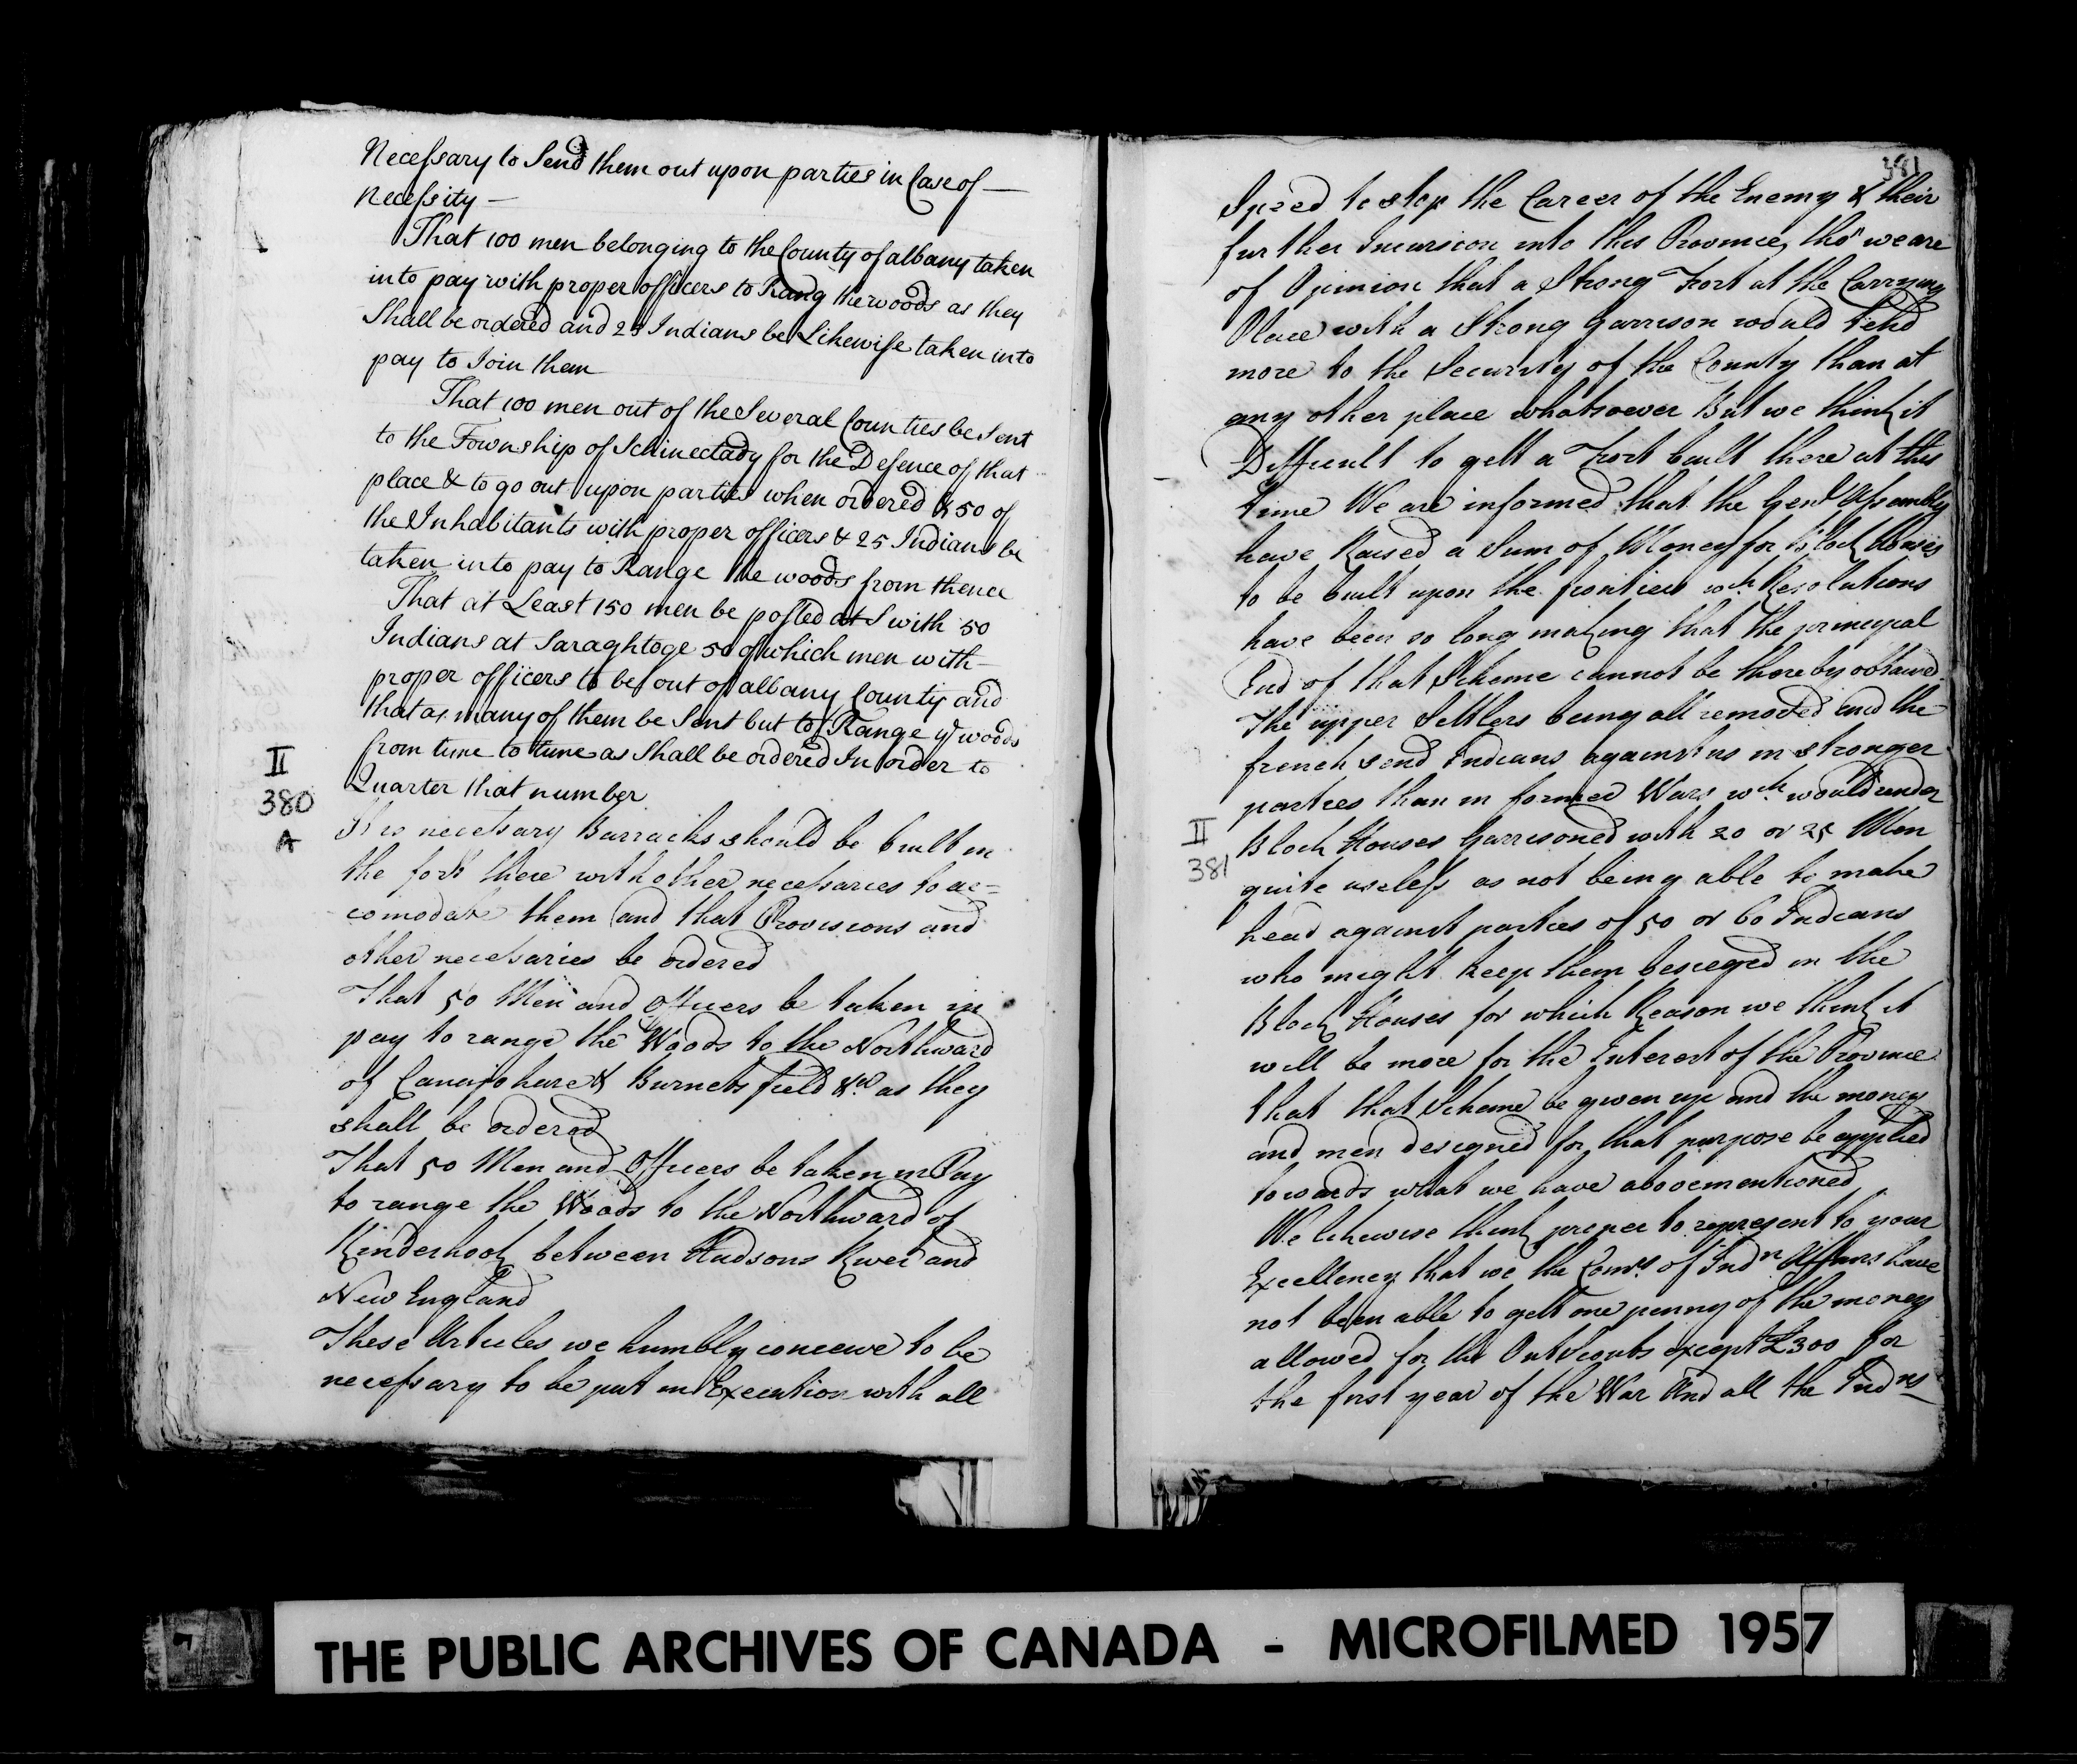 Necessary to Send them out upon parties in Case of —
Necessity —
That 100 men belonging to the County of albany taken
into pay with proper officers to Rang the woods as they
Shall be ordered and 25 Indians be Likewise taken into
pay to Join them
That 100 men out of the Several Counties be Sent
to the Township of Schinectady for the Defence of that
place & to go out upon parties when ordered & 50 of
the Inhabitants with proper officers & 25 Indians be
taken into pay to Range the woods from thence
That at Least 150 men be posted at S with 50
Indians at Saraghtoge 50 of which men with —
proper officers to be out of albany County and
that as many of them be Sent out to Range ye woods
from time to time as Shall be ordered In order to
Quarter that number
II
380
A
It is necessary Barracks should be built in
the fort there with other necessaries to ac=
comodate them and that Provisions and
other necessaries be ordered
That 50 Men and Officers be taken in
pay to range the Woods to the Northward
of Canajohare & Burnets field &ca as they
shall be ordered
That 50 Men and Officers be taken in Pay
to range the Woods to the Northward of
Kinderhook between Hudsons River and
New England
These Articles we humbly conceive to be
necessary to be put in Execution with all
381
Speed to stop the Career of the Enemy & their
further Incursion into this Province, tho' we are
of Opinion that a Strong Fort at the Carrying
Place with a Strong Garrison would tend
more to the Security of the County than at
any other place whatsoever But we think it
Difficult to gett a Fort built there at this
time We are informed that the Genl Assembly
have Raised a Sum of Money for Block Houses
to be built upon the frontiers wch Resolutions
have been so long making that the principal
End of that Scheme cannot be thereby obtained
The upper Settlers being all removed and the
french send Indians against us in stronger
parties than in former Wars wch would render
II
381
Block Houses Garrisoned with 20 or 25 Men
quite useless as not being able to make
head against parties of 50 or 60 Indians
who might keep them besieged in the
Block Houses for which Reason we think it
will be more for the Interest of the Province
that that Scheme be given up and the money
and men designed for that purpose be applied
towards what we have abovementioned
We likewise think proper to represent to your
Excellency that we the Comrs of Indn Affairs have
not been able to gett one penny of the money
allowed for the Out Scouts except £300 for
the first year of the War And all the Indns
THE PUBLIC ARCHIVES OF CANADA - MICROFILMED 1957